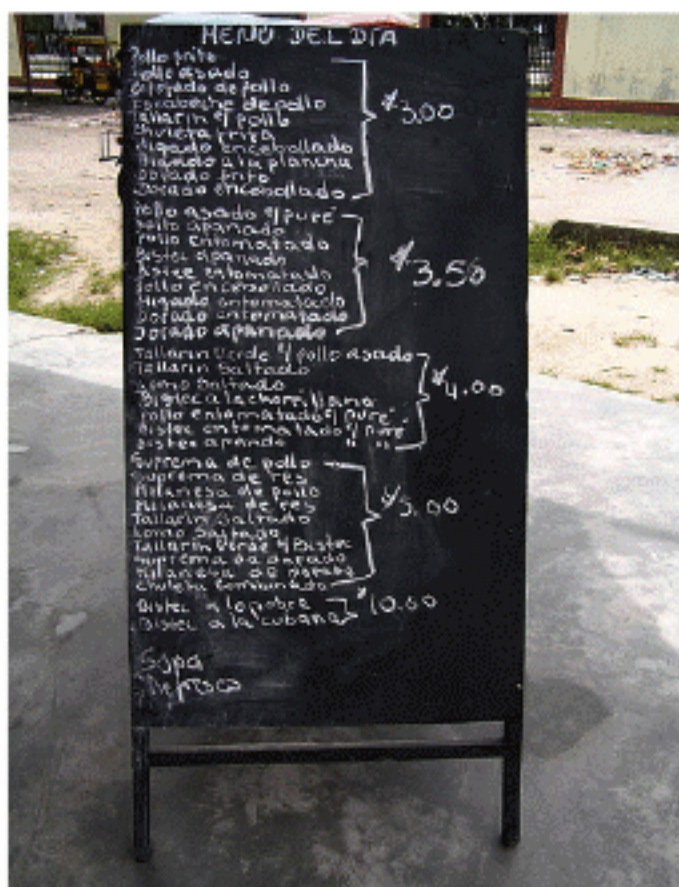 MENÚ DEL DÍA
Pollo frito
Pollo asado
Estofado de pollo
Escabeche de pollo
Tallarin c/ pollo
Chuleta frita
Higado encebollado
Higado a la plancha
Dorado frito
Dorado encebollado
$3.00
Pollo asado c/ puré
Pollo apanado
Pollo entomatado
Bistec apanado
Bistec entomatado
Pollo encebollado
Higado entomatado
Dorado entomatado
Dorado apanado
$3.50
Tallarin Verde c/ pollo asado
Tallarin Saltado
Lomo Saltado
Bistec a la chorrillana
Pollo entomatado c/ puré
Bistec entomatado c/ puré
Bistec apando " "
$4.00
Suprema de pollo
Suprema de res
Milanesa de pollo
Milanesa de res
Tallarin Saltado
Lomo Saltado
Tallarin Verde c/ Bistec
Suprema de dorado
Milanesa de dorado
Chuleta
5.00
Bistec a lo pobre
Bistec a la cubana
10.00
Sopa